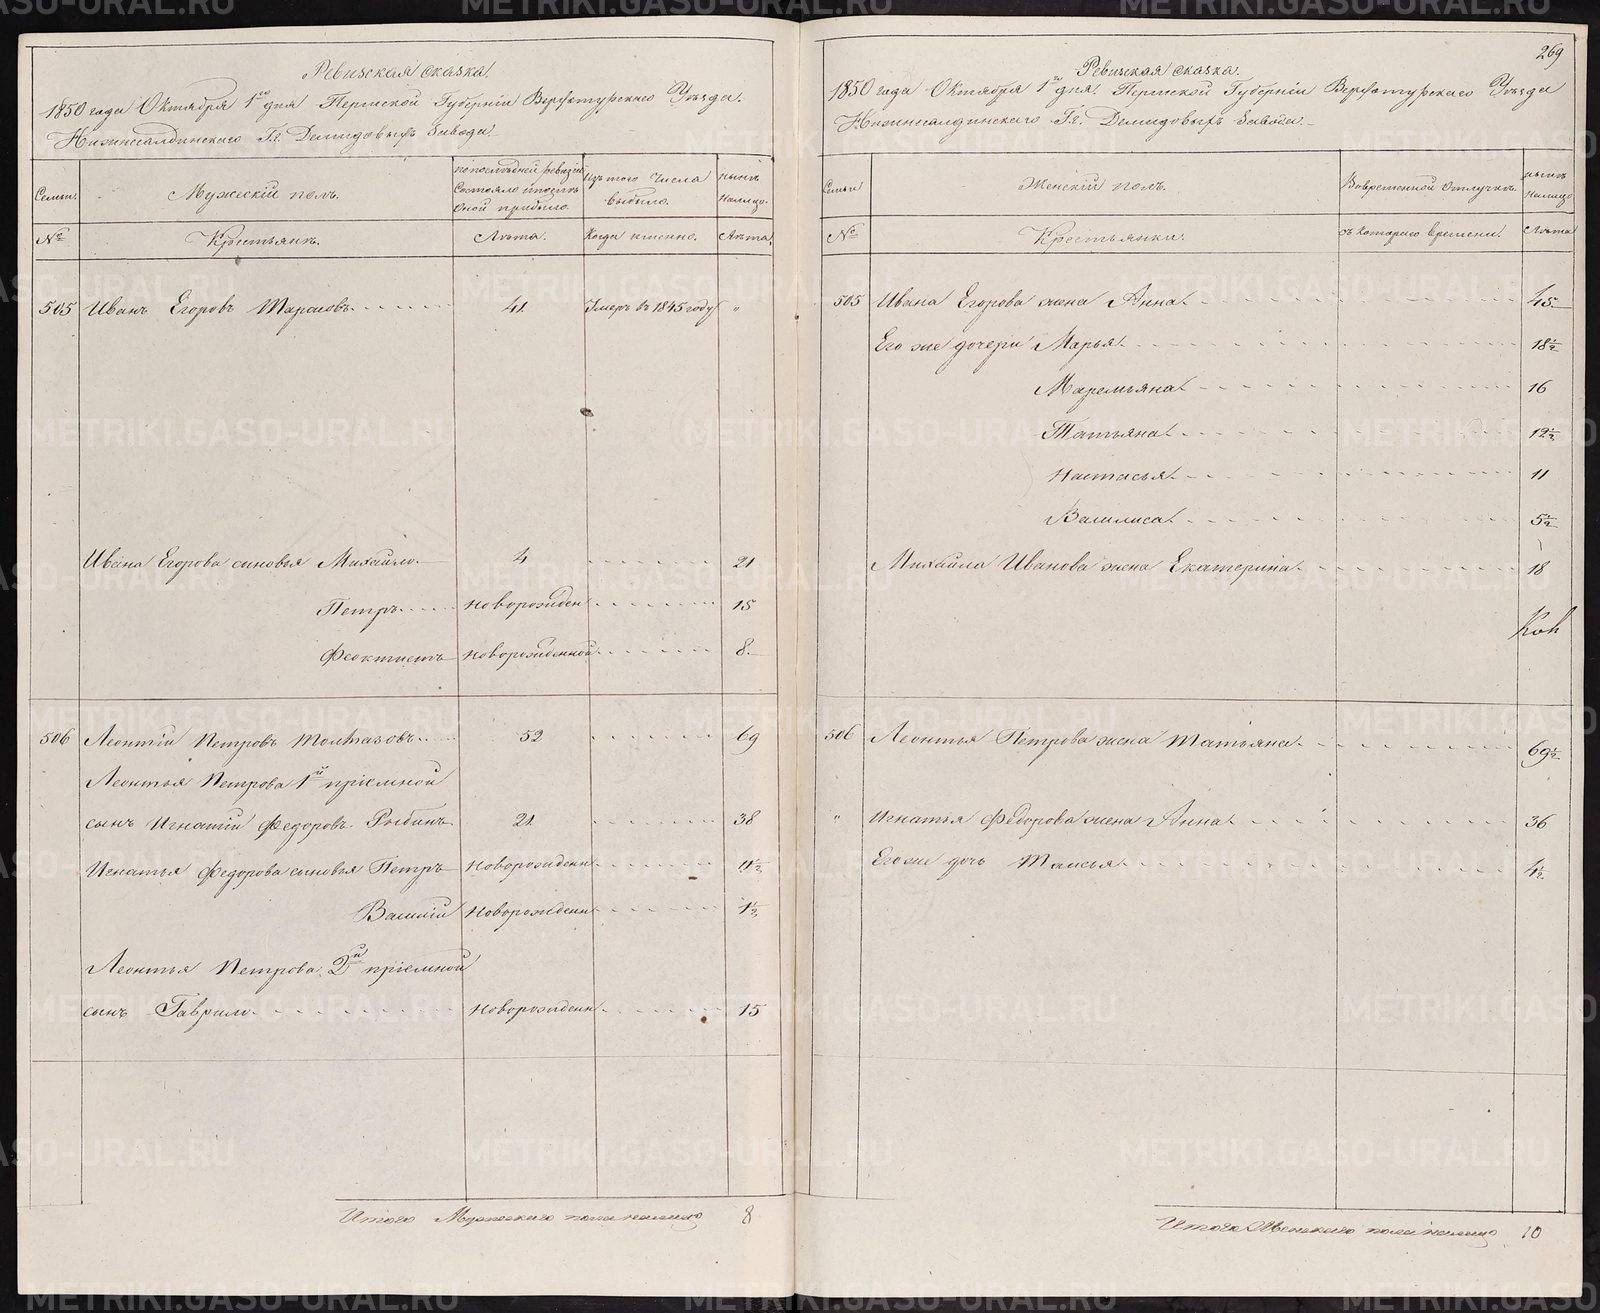 Ревизская сказка.
1850 года Октября 1го дня Пермской Губерніи Верхотурскаго Уѣзда.
Нижнесалдинскаго Гг. Демидовыхъ завода.
Семьи.
Мужескій полъ.
по послѣдней ревизіи состояло и послѣ оной прибыло.
Изъ того числа выбыло.
нынѣ на лицо.
№
Крестьянъ.
Лѣта.
Когда именно.
Лѣта.
505 Иванъ Егоровъ 41. Умеръ въ 1845 году "
Ивана Егорова сыновья Михайло. 4 21
Петръ новорожден 15
Феоктистъ новорожденной 8.
506 Леонтій Петровъ 52 69
Леонтья Петрова 1й пріемной
сынъ Игнатій Федоровъ Рыбинъ 21. 38
Игнатья Федорова сыновья Петръ Новорожденн 11½
Василій Новорожденн 1½
Леонтья Петрова 2й пріемной
сынъ Гаврило Новорожденн 15
Итого Мужескаго пола налицо 8
269
Ревизская сказка.
1850 года Октября 1го дня. Пермской Губерніи Верхотурскаго Уѣзда
Нижнесалдинскаго Гг. Демидовыхъ завода.
Семьи
Женскій полъ.
Во временной отлучкѣ.
нынѣ налицо
№
Крестьянки.
съ котораго времени.
Лѣта
505 Ивана Егорова жена Анна. 45
Его же дочери Марья. 18½
Маремьяна. 16
Татьяна. 12½
Настасья. 11
Василиса. 5½
Михайла Иванова жена Екатерина. 18
506 Леонтья Петрова жена Татьяна. 69½
" Игнатья Федорова жена Анна. 36
Его же дочь Таисья. 4½
Итого Женскаго пола налицо 10
METRIKI.GASO-URAL.RU